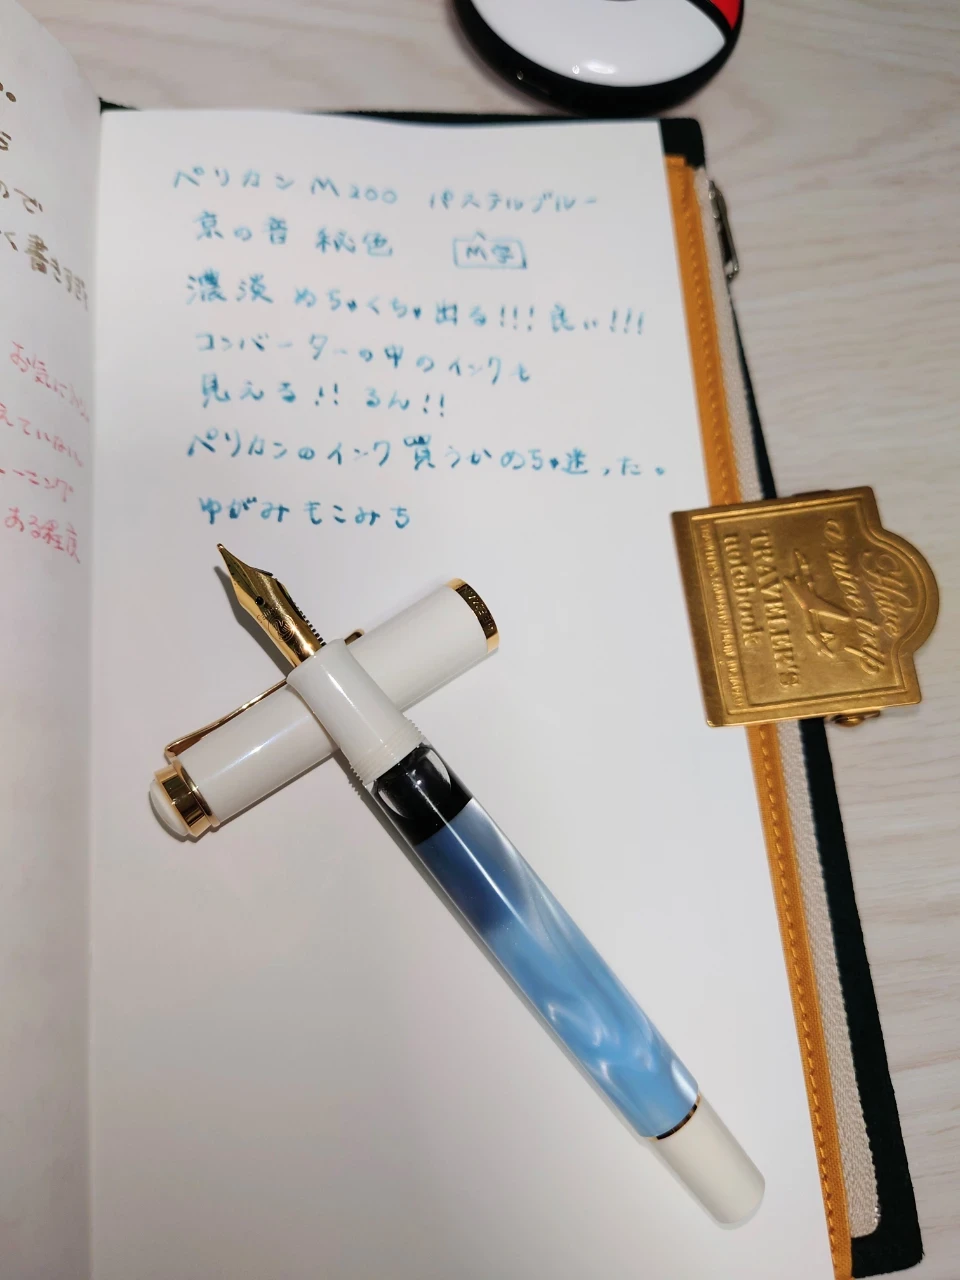 ので
く書き
お気に
えていない
ーニング
ある程度
ペリカン M200 パステルブルー
京の音 秘色 M字
濃淡 めちゃくちゃ出る!!! 良い!!!
コンバーターの中のインクも
見える!! るん!!
ペリカンのインク買うかめちゃ迷った。
ゆがみもこみち
Have
a nice trip
TRAVELER'S
notebook